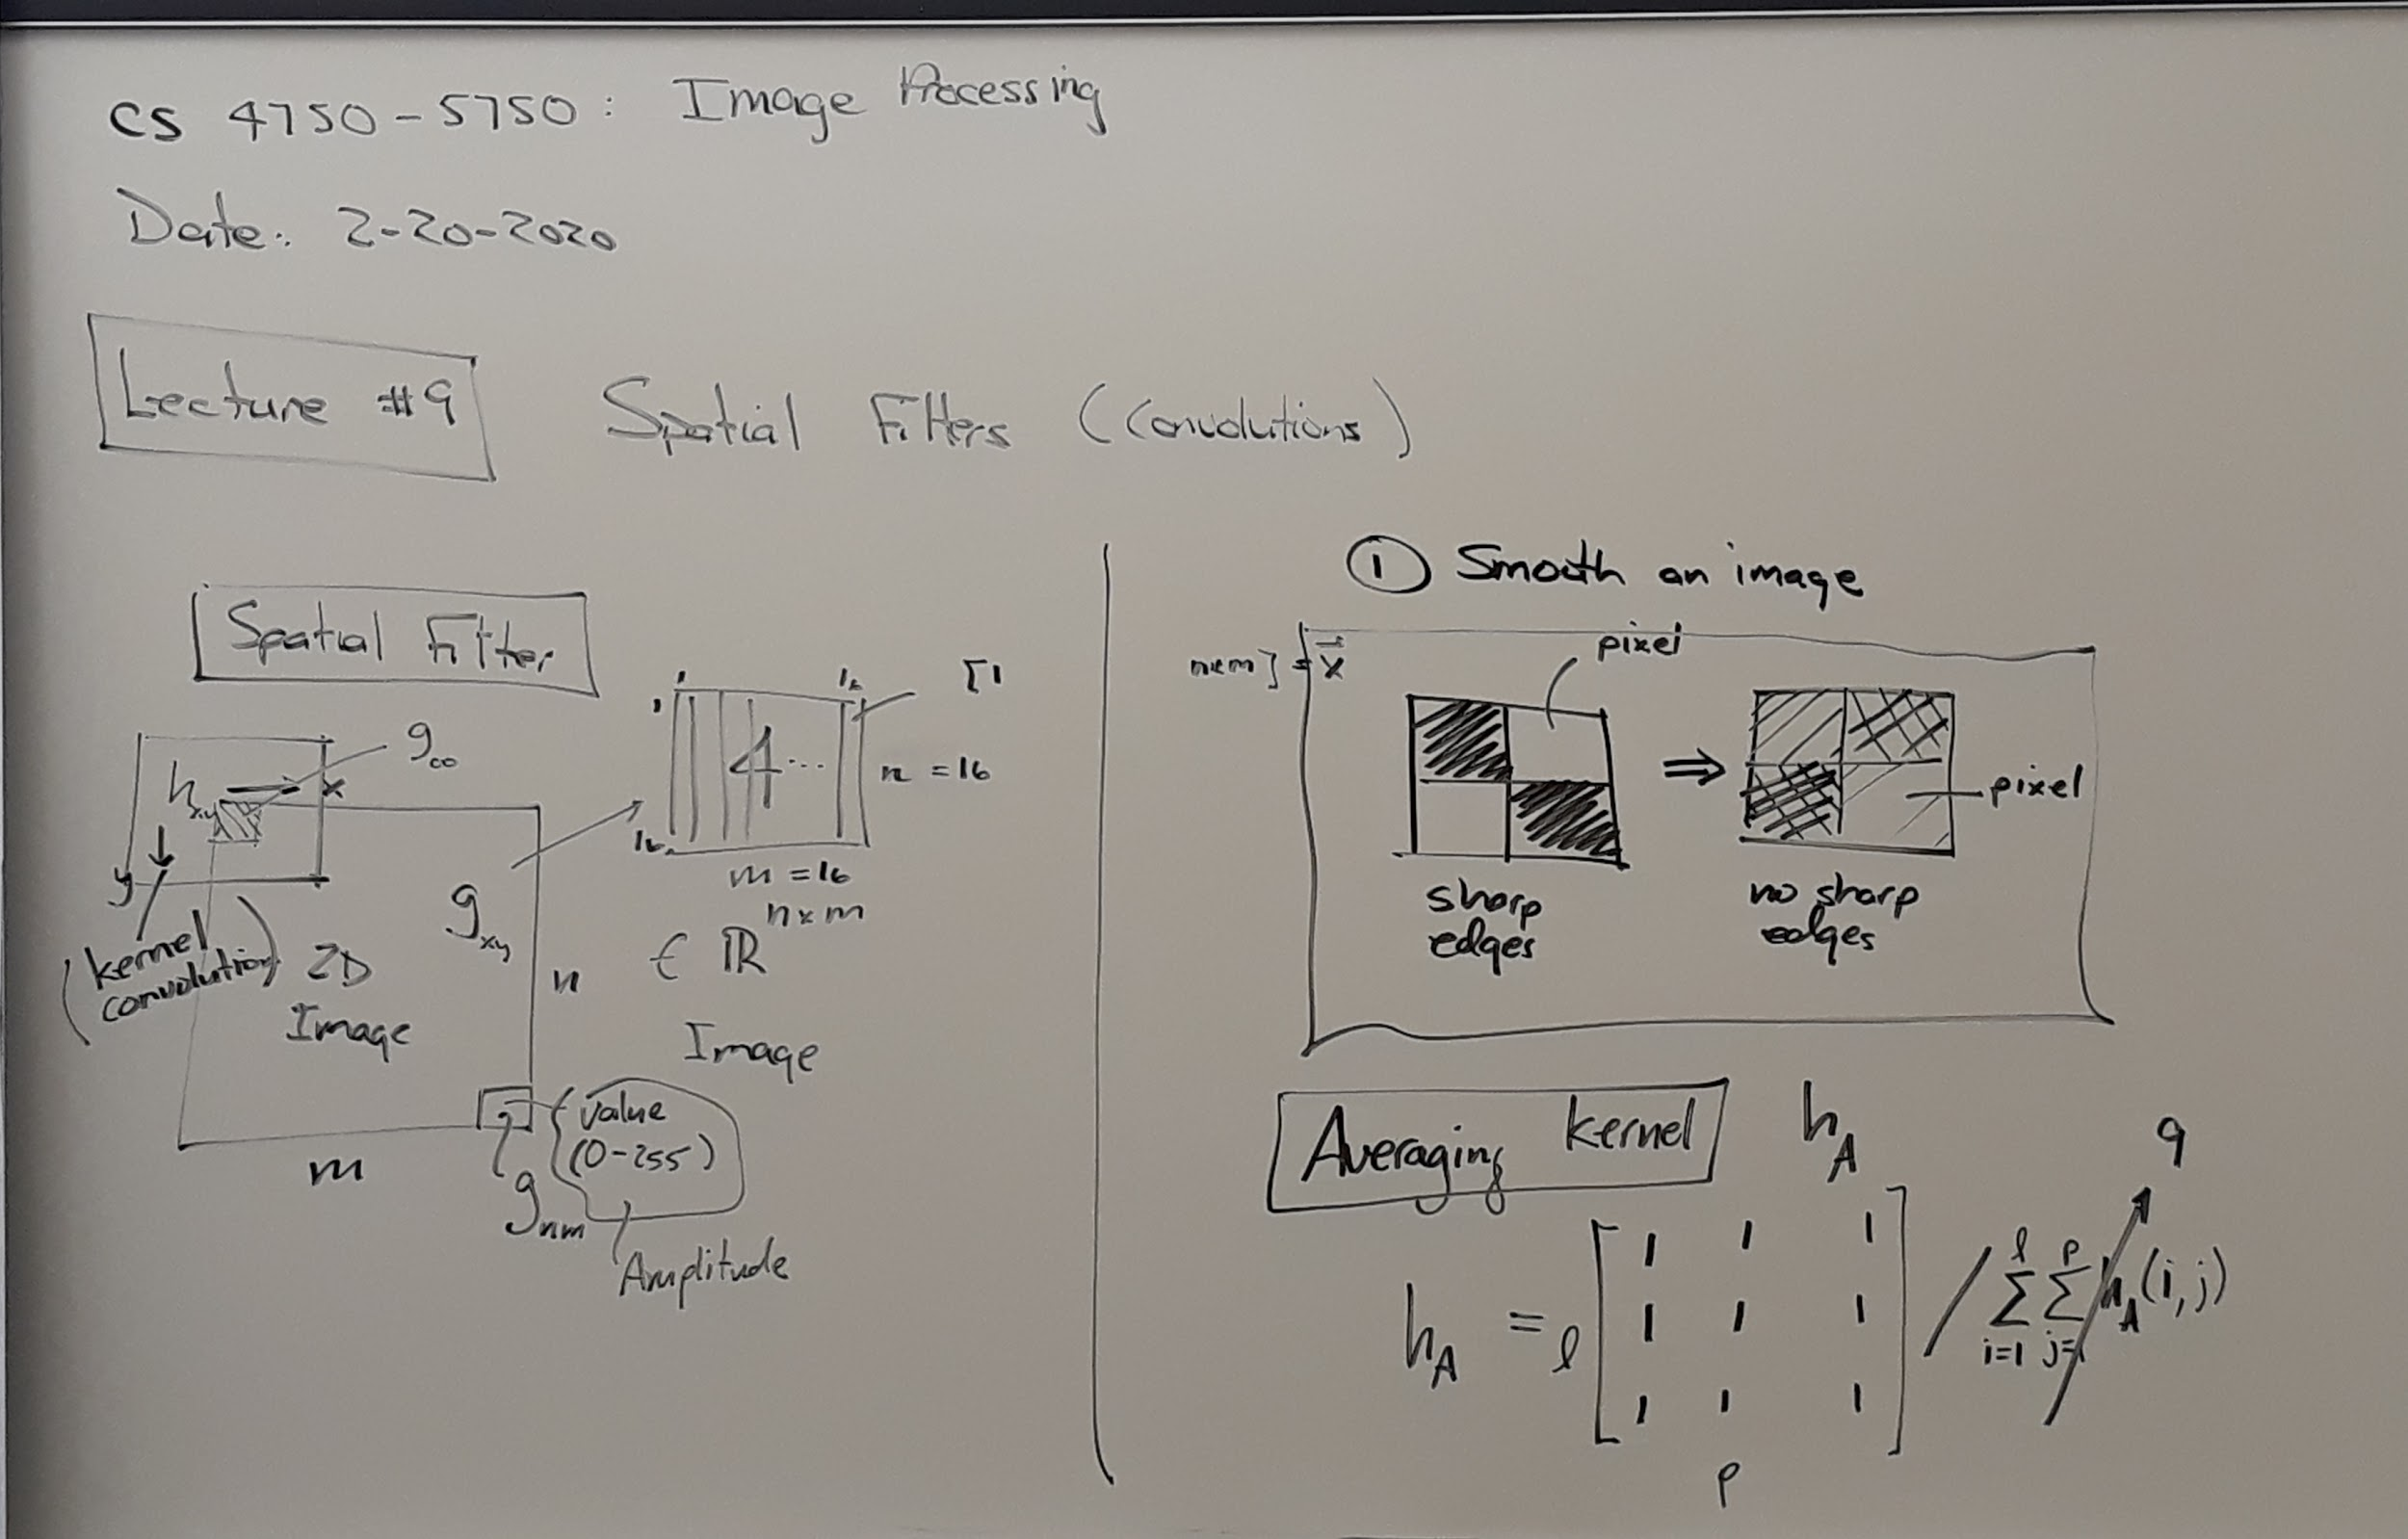 CS 4750-5750: Image Processing
Date: 2-20-2020
Lecture #9
Spatial Filters (Convolutions)
Spatial Filter
g₀₀
h_xy
x
y
(kernel convolution)
2D
Image
g_xy
n
m
g_nm
value
(0-255)
Amplitude
1
16
1
16
4...
[1
n = 16
m = 16
∈ ℝ^{n×m}
Image
① Smooth an image
n×m] = x⃗
pixel
⇒
pixel
sharp
edges
no sharp
edges
Averaging kernel
h_A
9
h_A = l [ 1 1 1
1 1 1
1 1 1 ] / Σ_{i=1}^{l} Σ_{j=1}^{p} h_A(i,j)
p